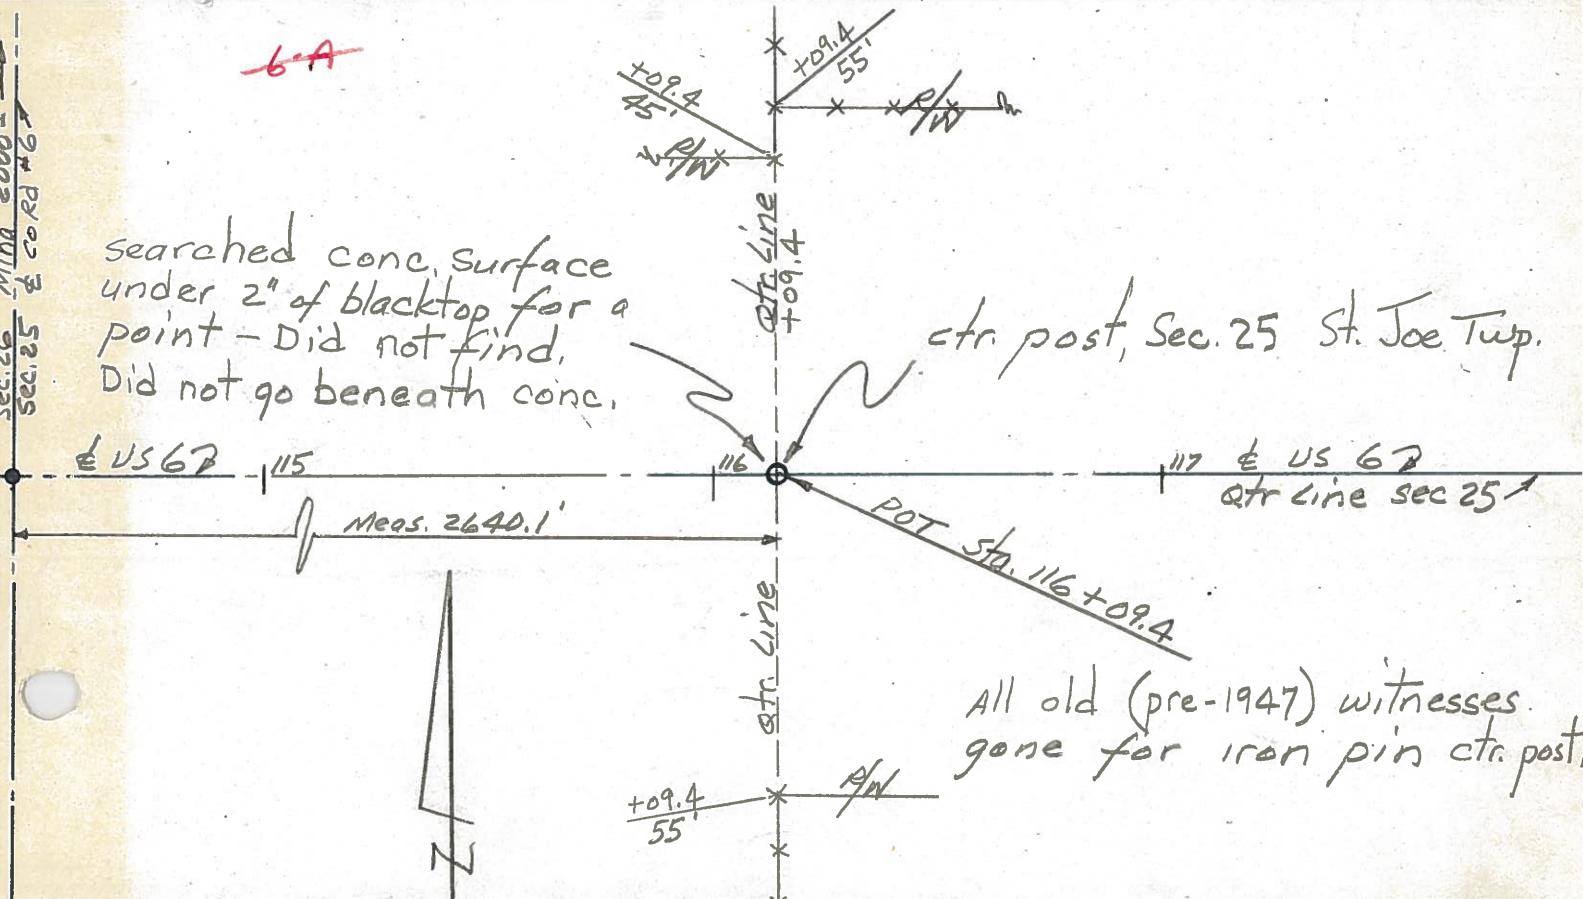 6-A
+09.4
45'
R/W
+09.4
55'
R/W
Qtr. Line
+09.4
Sec. 26
Sec. 25
℄ Co Rd #6
searched conc. surface
under 2" of blacktop for a
point - Did not find.
Did not go beneath conc.
ctr. post, Sec. 25 St. Joe Twp.
℄ US 6
115
116
117
℄ US 6
Qtr Line Sec 25
Meas. 2640.1'
POT Sta. 116+09.4
Qtr. Line
All old (pre-1947) witnesses
gone for iron pin ctr. post.
+09.4
55'
R/W
N